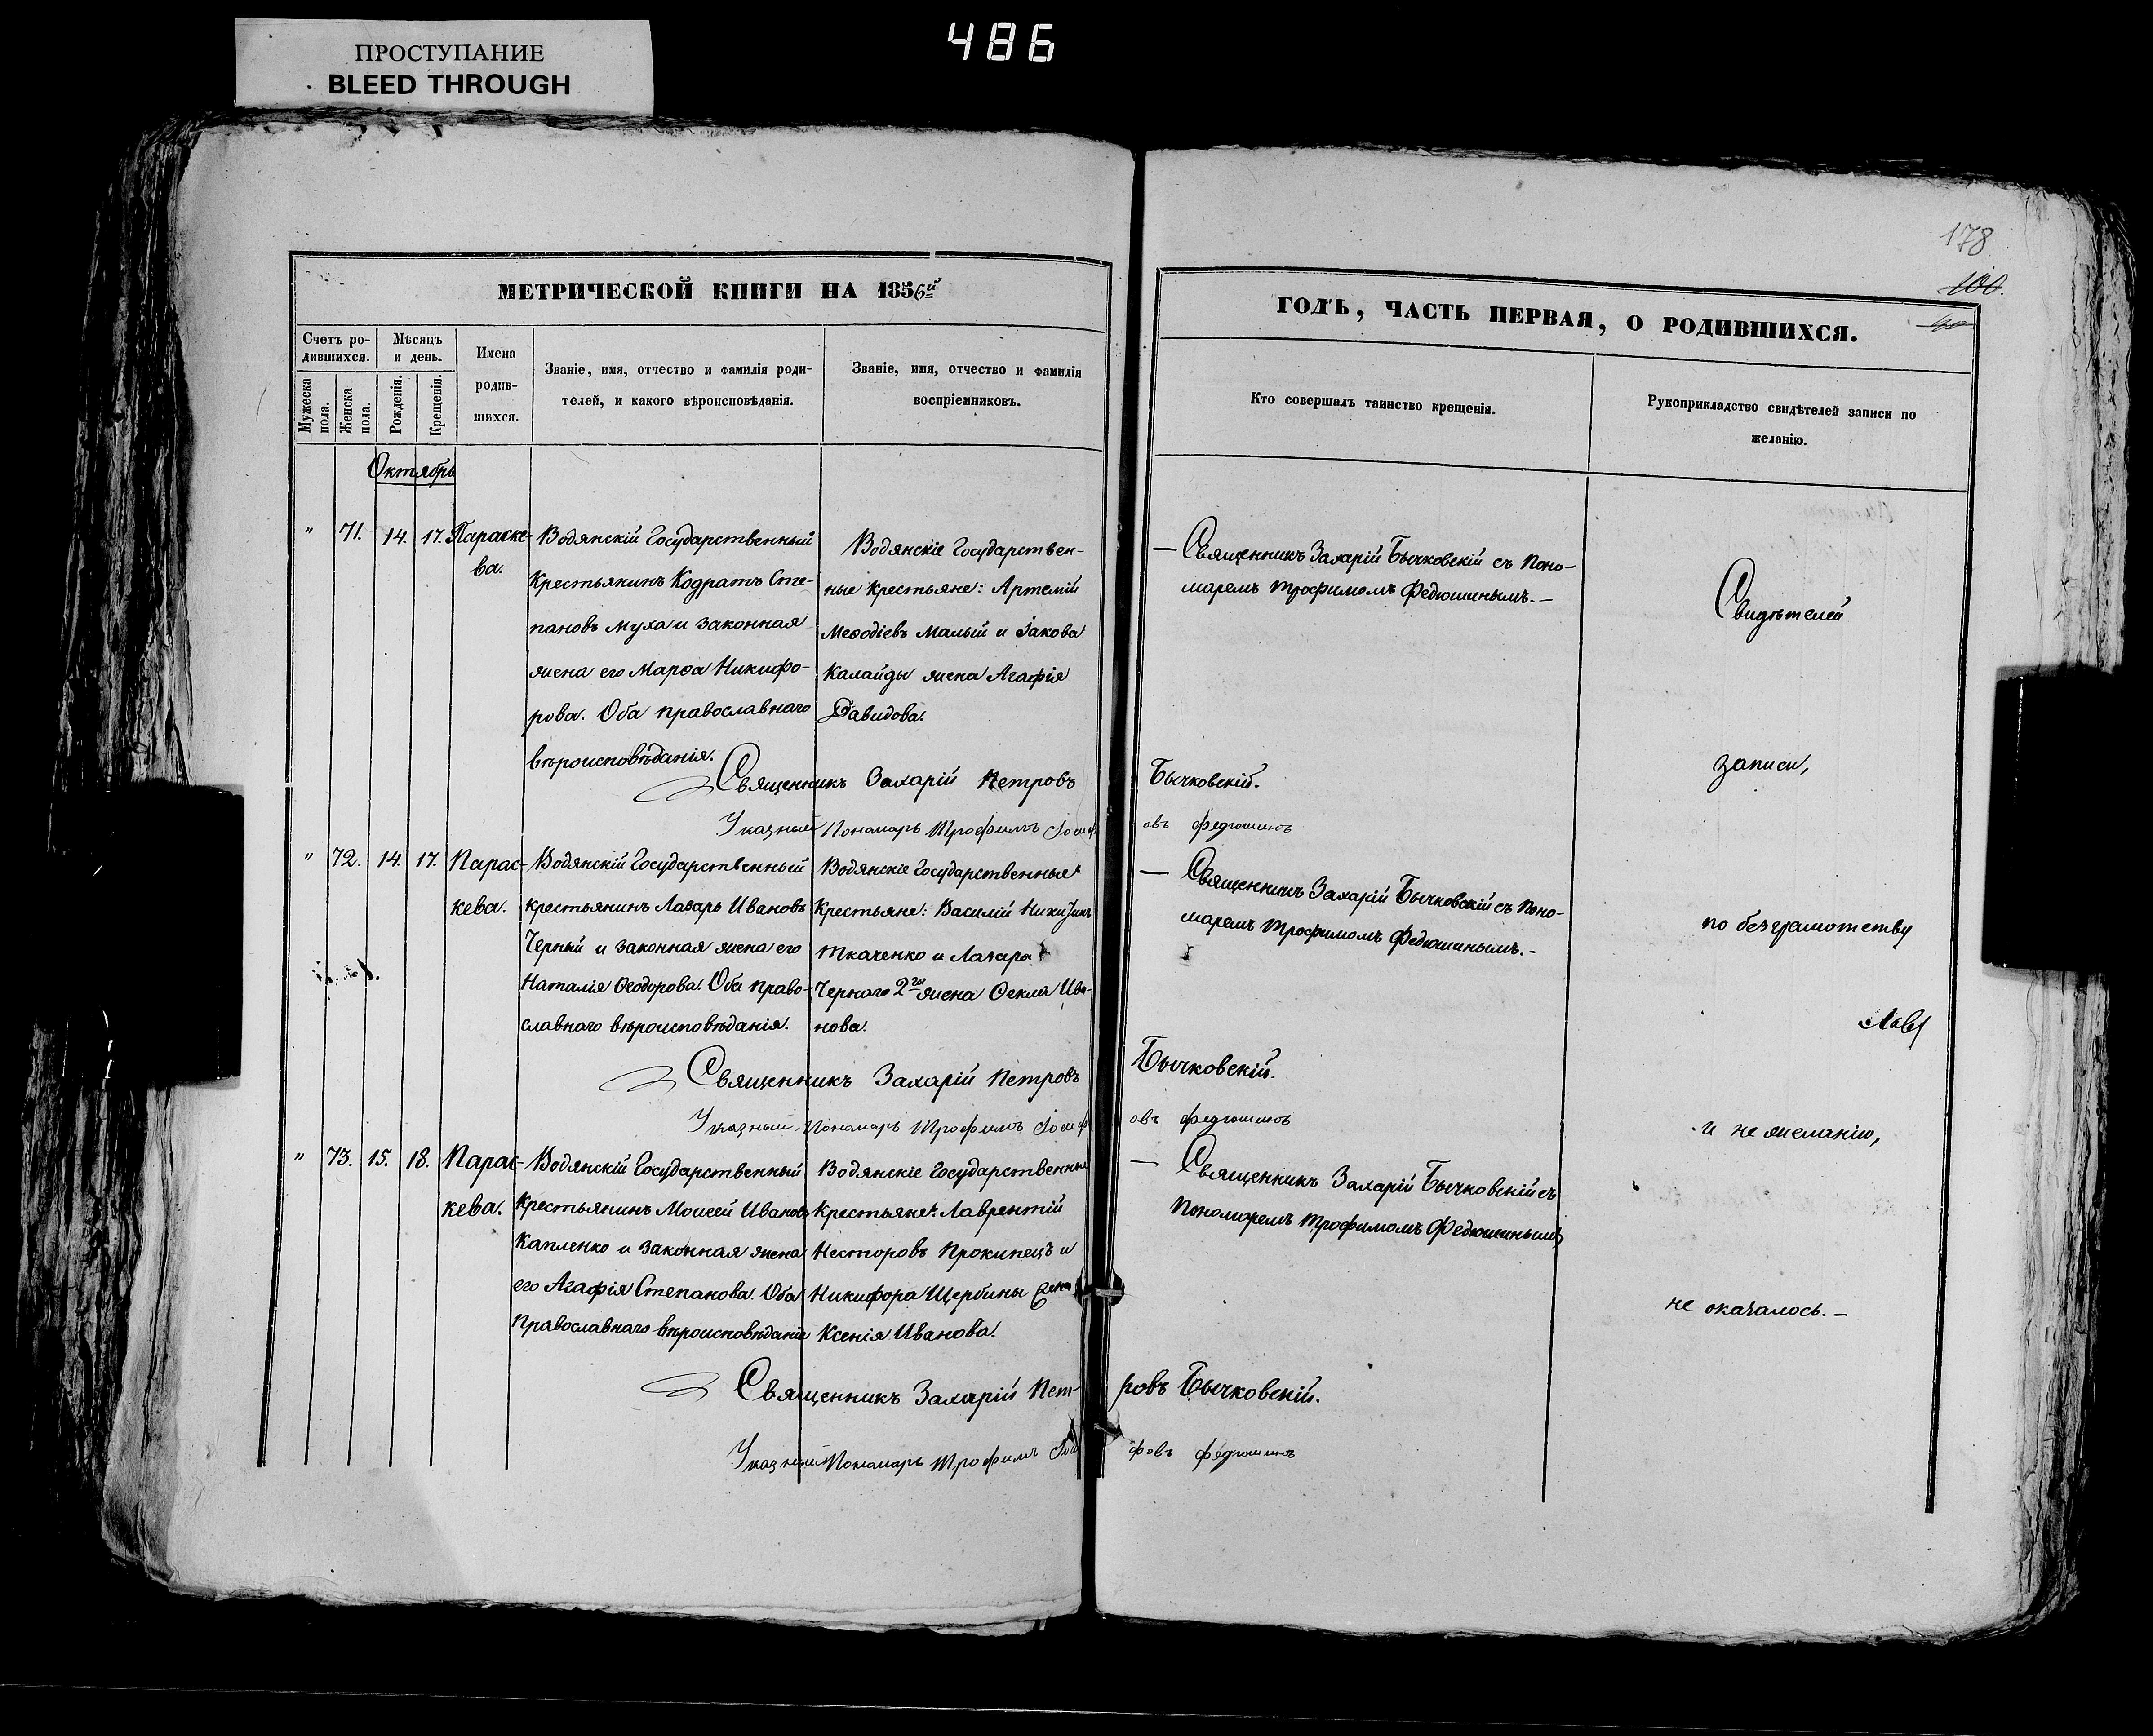 486
ПРОСТУПАНИЕ
BLEED THROUGH
178
100.
МЕТРИЧЕСКОЙ КНИГИ НА 1856й
ГОДЪ, ЧАСТЬ ПЕРВАЯ, О РОДИВШИХСЯ.
Счетъ ро-
дившихся.
Мужеска
пола.
Женска
пола.
Мѣсяцъ
и день.
Рожденія.
Крещенія.
Имена
родив-
шихся.
Званіе, имя, отчество и фамилія роди-
телей, и какого вѣроисповѣданія.
Званіе, имя, отчество и фамилія
воспріемниковъ.
Кто совершалъ таинство крещенія.
Рукоприкладство свидѣтелей записи по
желанію.
Октябрь
" 71. 14. 17. Параске-
ва.
Водянскій Государственный
Крестьянинъ Кодратъ Сте-
пановъ Муха и законная
жена его Марѳа Никифо-
рова. Оба православнаго
вѣроисповѣданія.
Водянскіе Государствен-
ные Крестьяне: Артемій
Меѳодіевъ Малый и Іакова
Калайды жена Агафія
Давидова.
— Священникъ Захарій Бычковскій съ Поно-
маремъ Трофимомъ Федюшинымъ. —
Священникъ Захарій Петровъ Бычковскій.
Указный Пономарь Трофимъ Іосифовъ Федюшинъ
" 72. 14. 17. Парас-
кева.
Водянскій Государственный
крестьянинъ Лазарь Ивановъ
Черный и законная жена его
Наталія Ѳеодорова. Оба право-
славнаго вѣроисповѣданія.
Водянскіе Государственные
Крестьяне: Василій
Ткаченко и Лазаря
Чернаго 2го жена Ѳекла Ива-
нова.
— Священникъ Захарій Бычковскій съ Поно-
маремъ Трофимомъ Федюшинымъ. —
Священникъ Захарій Петровъ Бычковскій.
Указный Пономарь Трофимъ Іосифовъ Федюшинъ
" 73. 15. 18. Парас-
кева.
Водянскій Государственный
Крестьянинъ Моисей Ивановъ
Капленко и законная жена
его Агафія Степанова. Оба
Православнаго вѣроисповѣданія
Водянскіе Государственные
Крестьяне: Лаврентій
Несторовъ Прокипецъ и
Никифора Щербины жена
Ксенія Иванова.
— Священникъ Захарій Бычковскій съ
Пономаремъ Трофимомъ Федюшинымъ
Священникъ Захарій Петровъ Бычковскій.
Указный Пономарь Трофимъ Іосифовъ Федюшинъ
Свидѣтелей
записи,
по безграмотству
и не желанію,
не оказалось. —